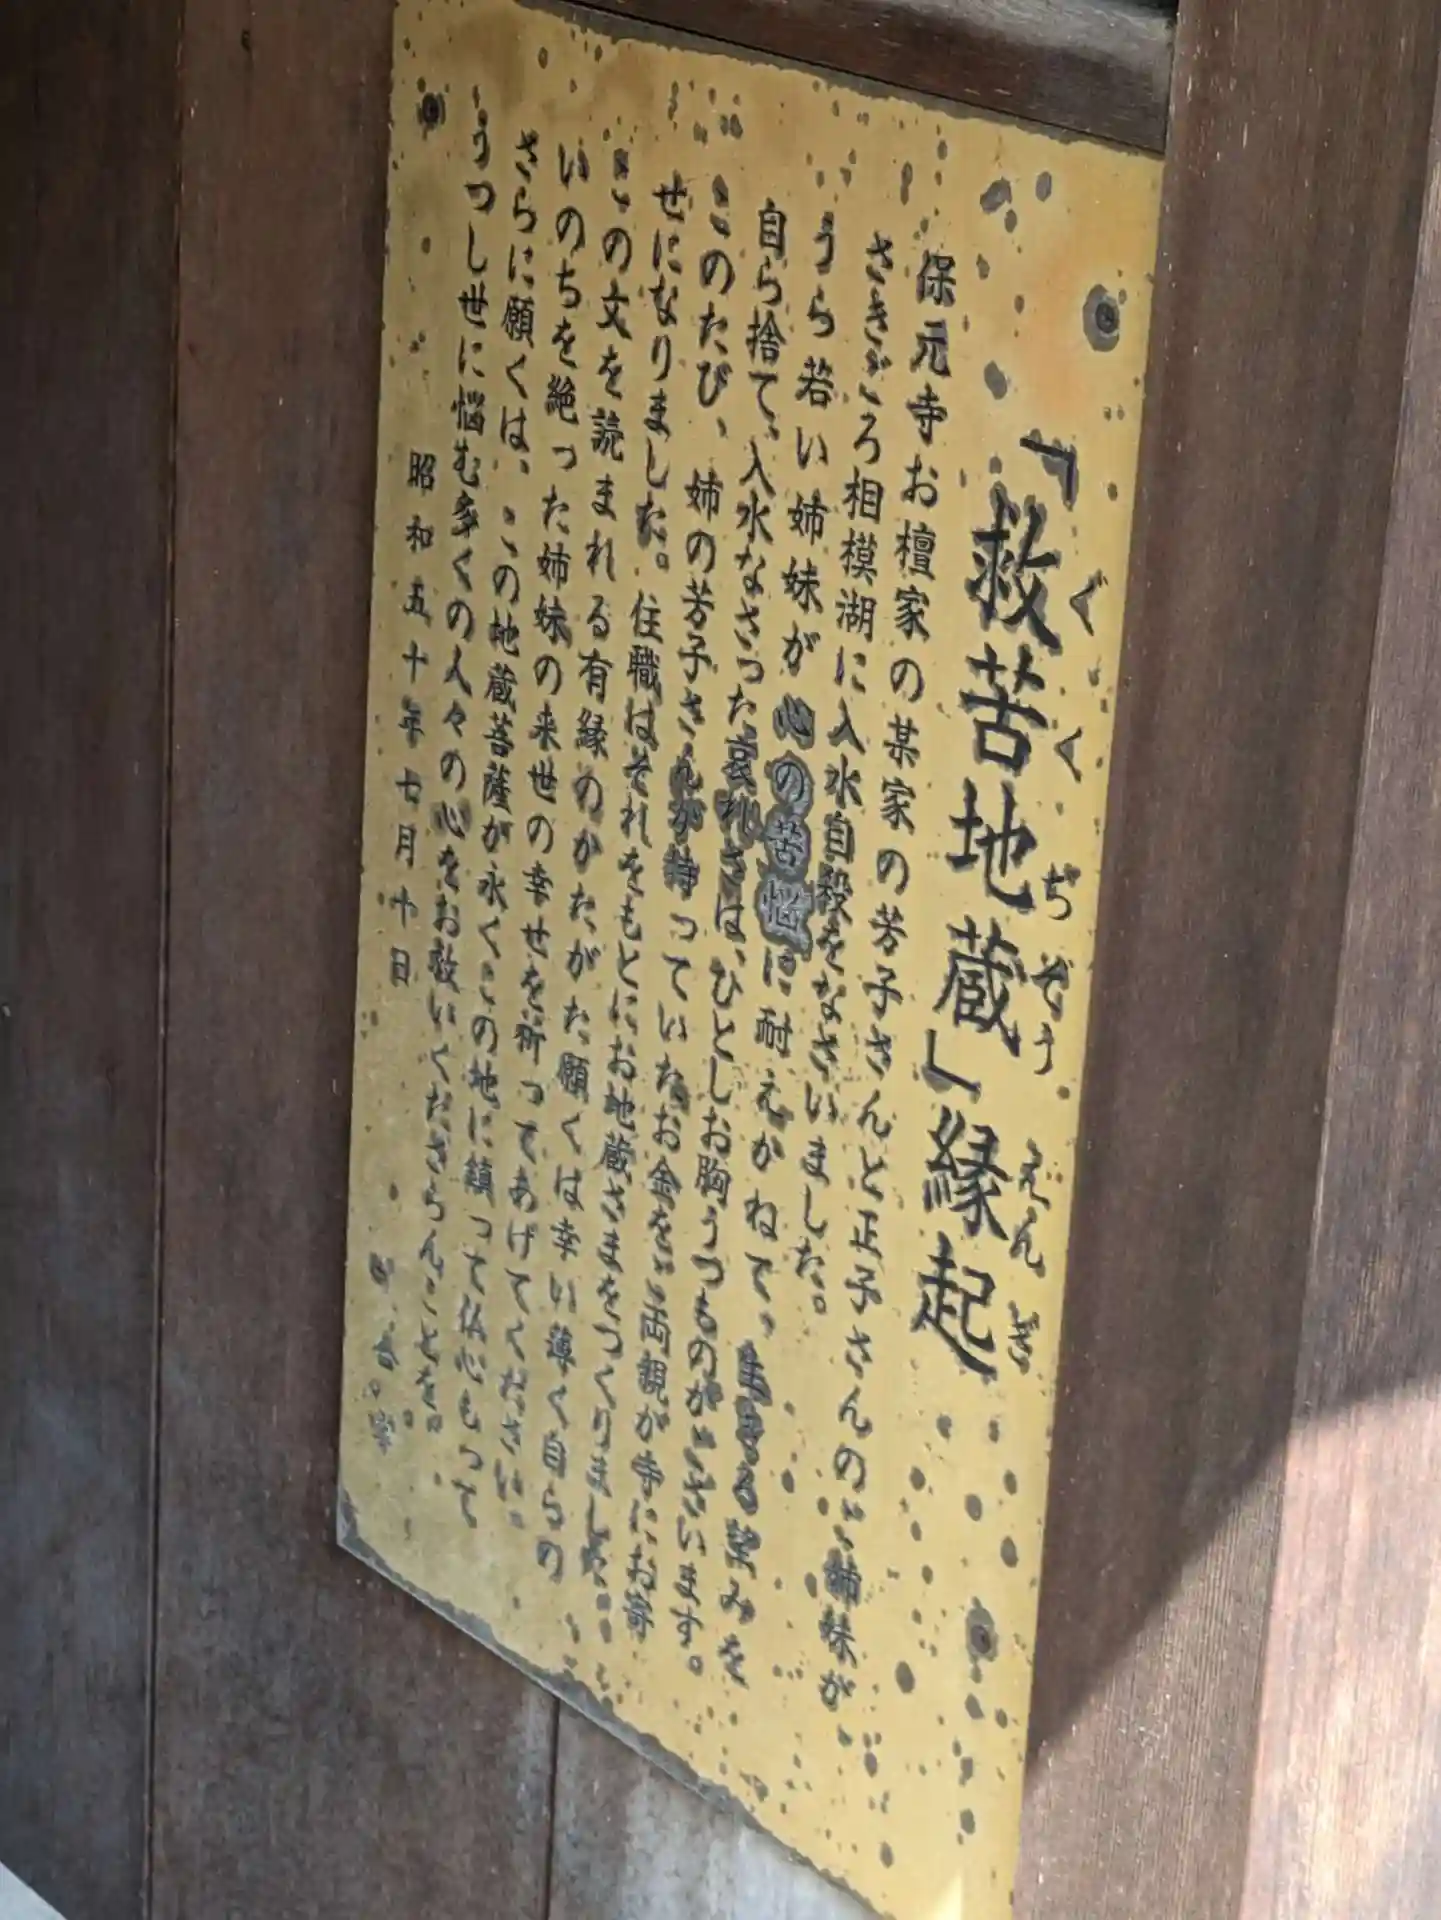 「救苦地蔵」縁起
ぐくぢぞうえんぎ
保元寺お檀家の某家の芳子さんと正子さんのご姉妹が、
さきごろ相模湖に入水自殺をなさいました。
うら若い姉妹が心の苦悩に耐えかねて、生きる望みを
自ら捨て、入水なさった哀れさは、ひとしお胸うつものがございます。
このたび、姉の芳子さんが持っていたお金をご両親が寺にお寄
せになりました。住職はそれをもとにお地蔵さまをつくりました。
この文を読まれる有縁のかたがた願くは幸い薄く自らの
いのちを絶った姉妹の来世の幸せを祈ってあげてください。
さらに願くは、この地蔵菩薩が永くこの地に鎮って仏心もって
うつし世に悩む多くの人々の心をお救いくださらんことを。
昭和五十年七月十日